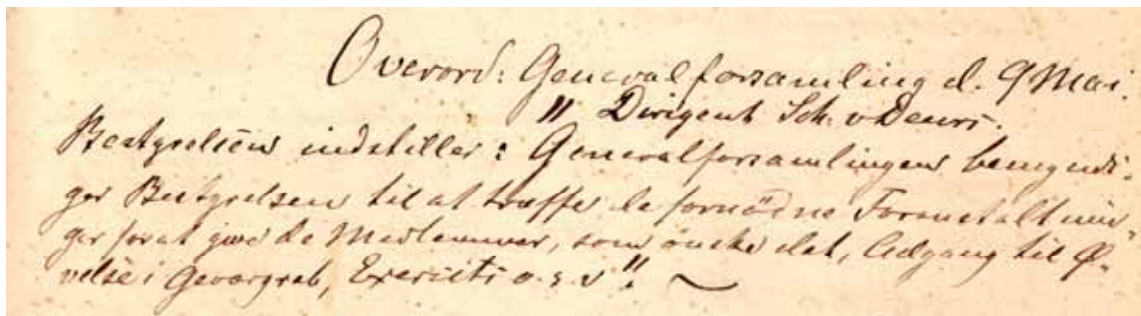 Overord: Generalforsamling d. 9 Mai.
" Dirigent Sch. v Deurs.
Bestyrelsen indstiller: Generalforsamlingen bemyndi-
ger Bestyrelsen til at træffe de fornödne Foranstaltnin-
ger for at give de Medlemmer, som önske det, Adgang til Ø-
velse i Geværgreb, Exersits o. s. v".